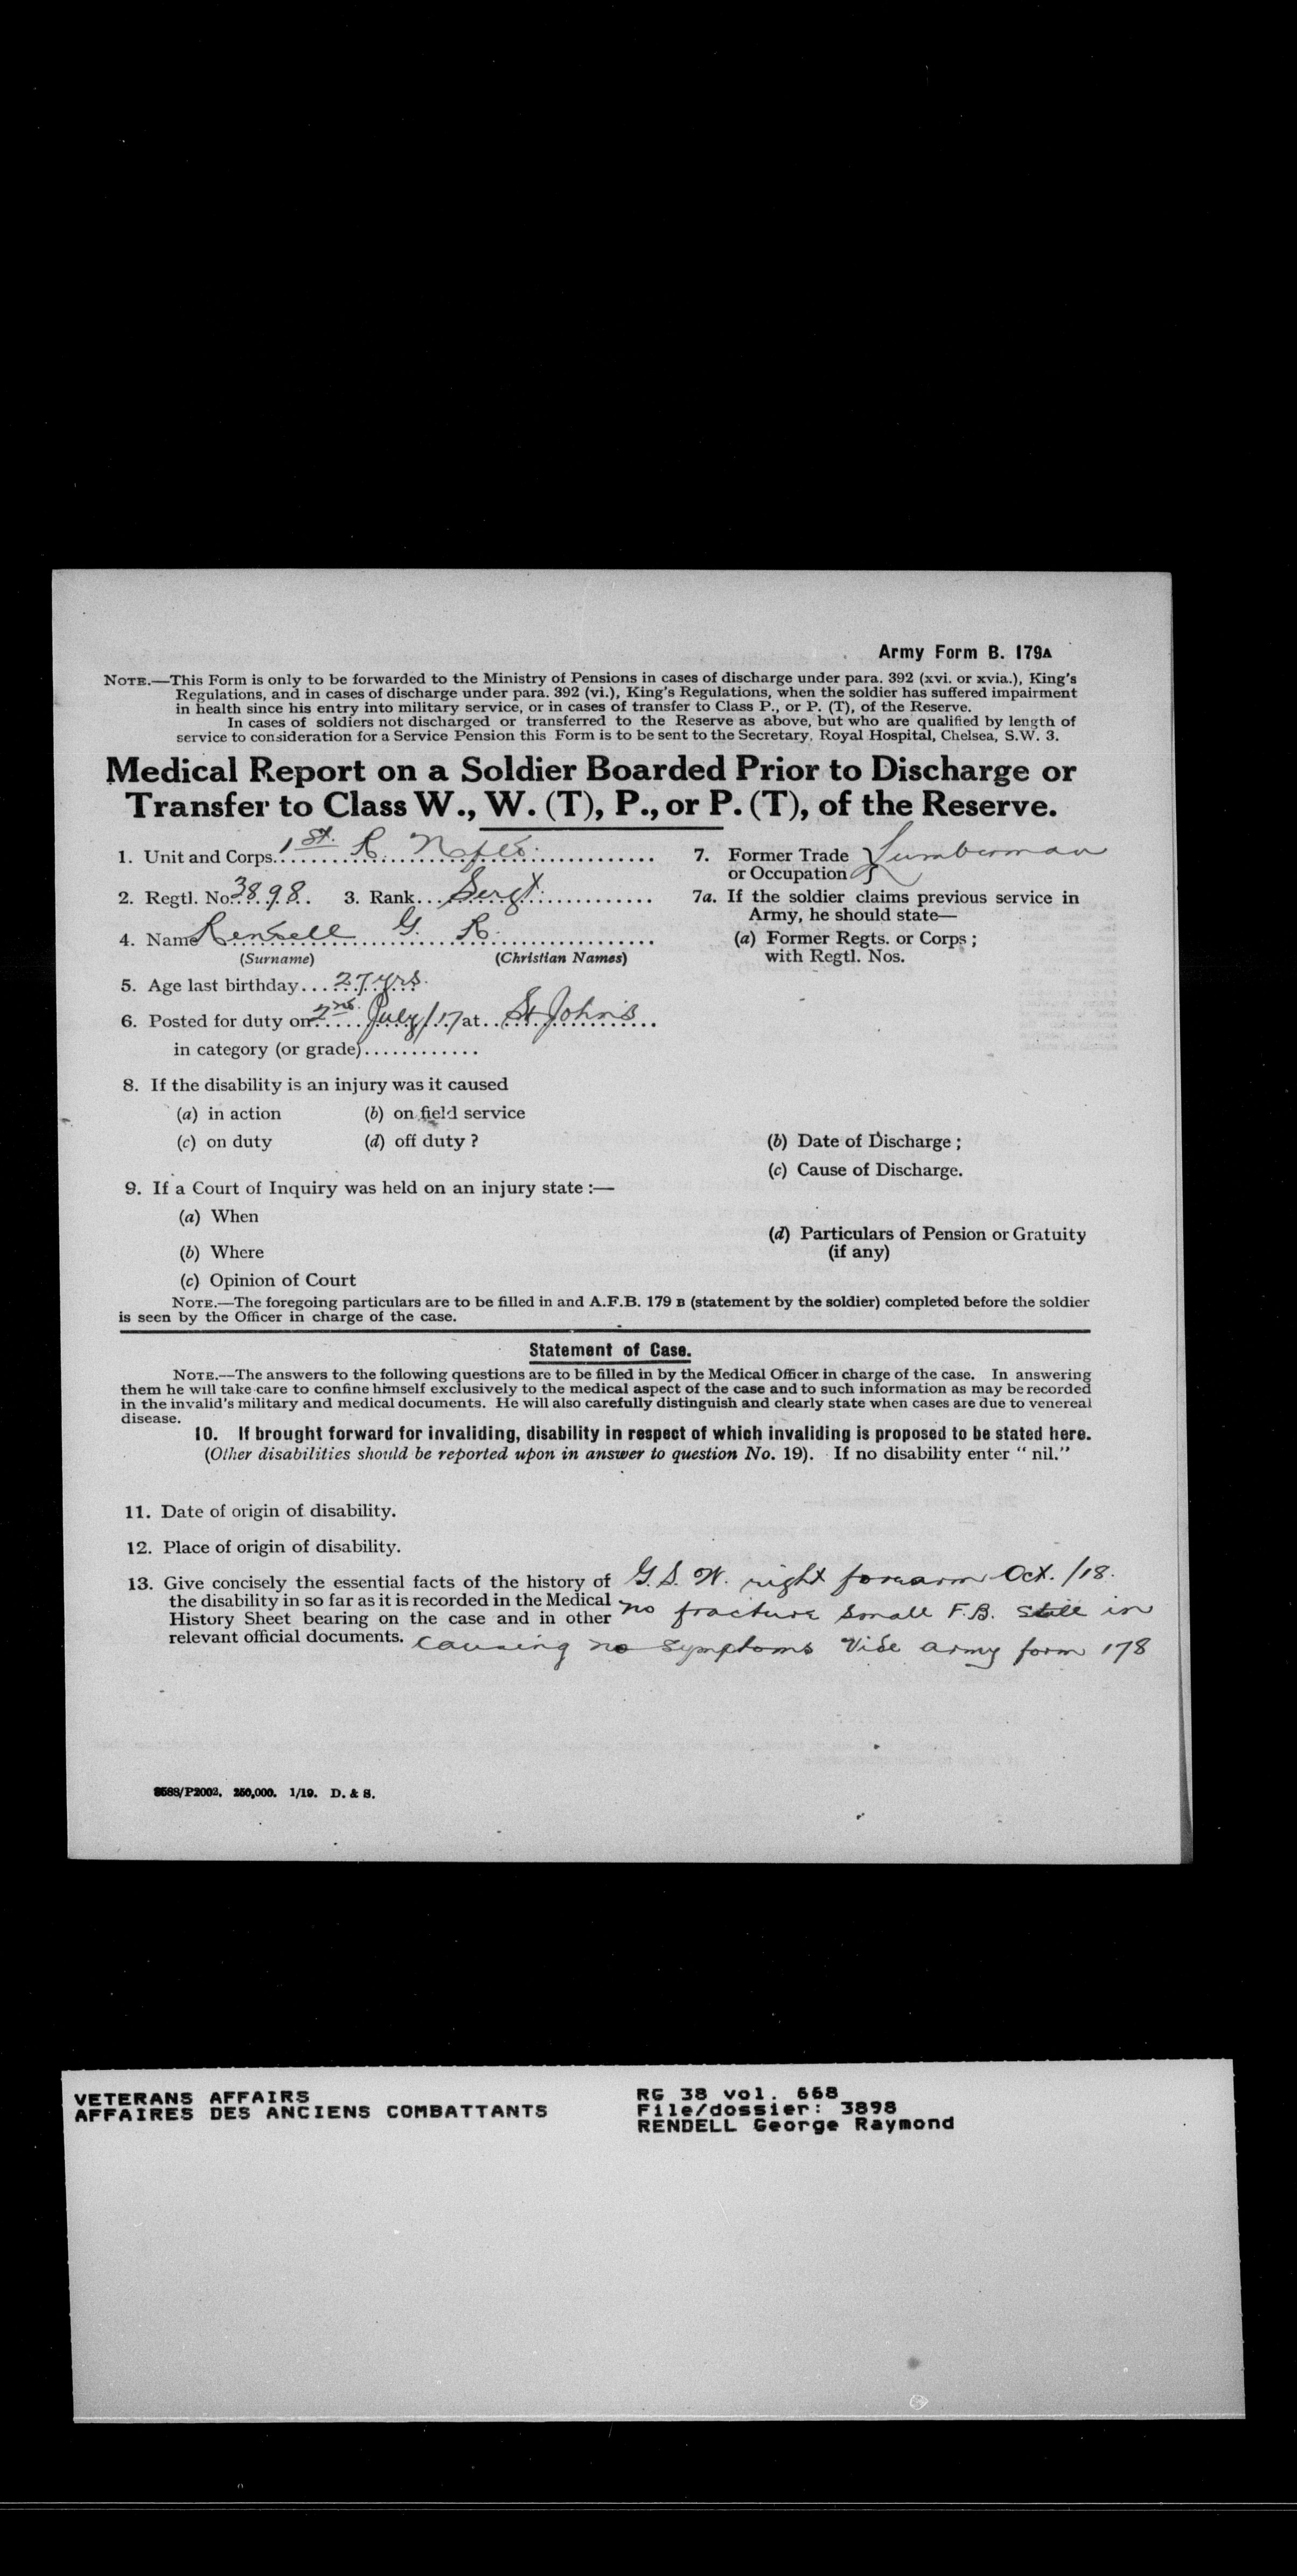 Army Form B. 179A
NOTE.—This Form is only to be forwarded to the Ministry of Pensions in cases of discharge under para. 392 (xvi. or xvia.), King's
Regulations, and in cases of discharge under para. 392 (vi.), King's Regulations, when the soldier has suffered impairment
in health since his entry into military service, or in cases of transfer to Class P., or P. (T), of the Reserve.
In cases of soldiers not discharged or transferred to the Reserve as above, but who are qualified by length of
service to consideration for a Service Pension this Form is to be sent to the Secretary, Royal Hospital, Chelsea, S.W. 3.
Medical Report on a Soldier Boarded Prior to Discharge or
Transfer to Class W., W. (T), P., or P. (T), of the Reserve.
1. Unit and Corps 1st. R. Nfld.
2. Regtl. No. 3898. 3. Rank Sergt.
4. Name Rendell G. R.
(Surname) (Christian Names)
5. Age last birthday 27 yrs.
6. Posted for duty on 2nd July/17 at St Johns
in category (or grade)
7. Former Trade or Occupation } Lumberman
7a. If the soldier claims previous service in
Army, he should state—
(a) Former Regts. or Corps ;
with Regtl. Nos.
8. If the disability is an injury was it caused
(a) in action (b) on field service
(c) on duty (d) off duty ?
(b) Date of Discharge ;
(c) Cause of Discharge.
9. If a Court of Inquiry was held on an injury state :—
(a) When
(b) Where
(c) Opinion of Court
(d) Particulars of Pension or Gratuity
(if any)
NOTE.—The foregoing particulars are to be filled in and A.F.B. 179 B (statement by the soldier) completed before the soldier
is seen by the Officer in charge of the case.
Statement of Case.
NOTE.—The answers to the following questions are to be filled in by the Medical Officer in charge of the case. In answering
them he will take care to confine himself exclusively to the medical aspect of the case and to such information as may be recorded
in the invalid's military and medical documents. He will also carefully distinguish and clearly state when cases are due to venereal
disease.
10. If brought forward for invaliding, disability in respect of which invaliding is proposed to be stated here.
(Other disabilities should be reported upon in answer to question No. 19). If no disability enter " nil."
11. Date of origin of disability.
12. Place of origin of disability.
13. Give concisely the essential facts of the history of
the disability in so far as it is recorded in the Medical
History Sheet bearing on the case and in other
relevant official documents.
G.S.W. right forearm Oct. /18.
no fracture small F.B. still in
causing no symptoms Vide army form 178
8588/P2002. 250,000. 1/19. D. & S.
VETERANS AFFAIRS
AFFAIRES DES ANCIENS COMBATTANTS
RG 38 vol. 668
File/dossier: 3898
RENDELL George Raymond